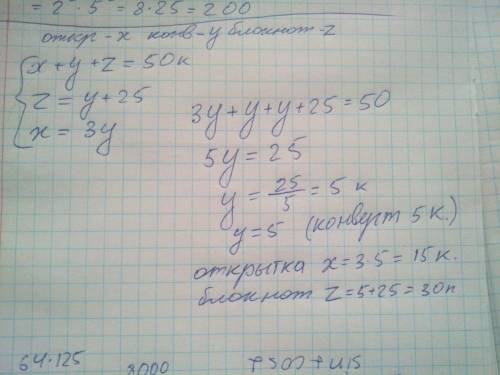 = 2 · 5 = 8·25 = 200
откр - x конв - y блокнот - z
x + y + z = 50 к
z = y + 25
x = 3y
3y + y + y + 25 = 50
5y = 25
y = 25/5 = 5 к
y = 5 (конверт 5 к.)
открытка x = 3·5 = 15 к.
блокнот z = 5 + 25 = 30 к
64·125
8000